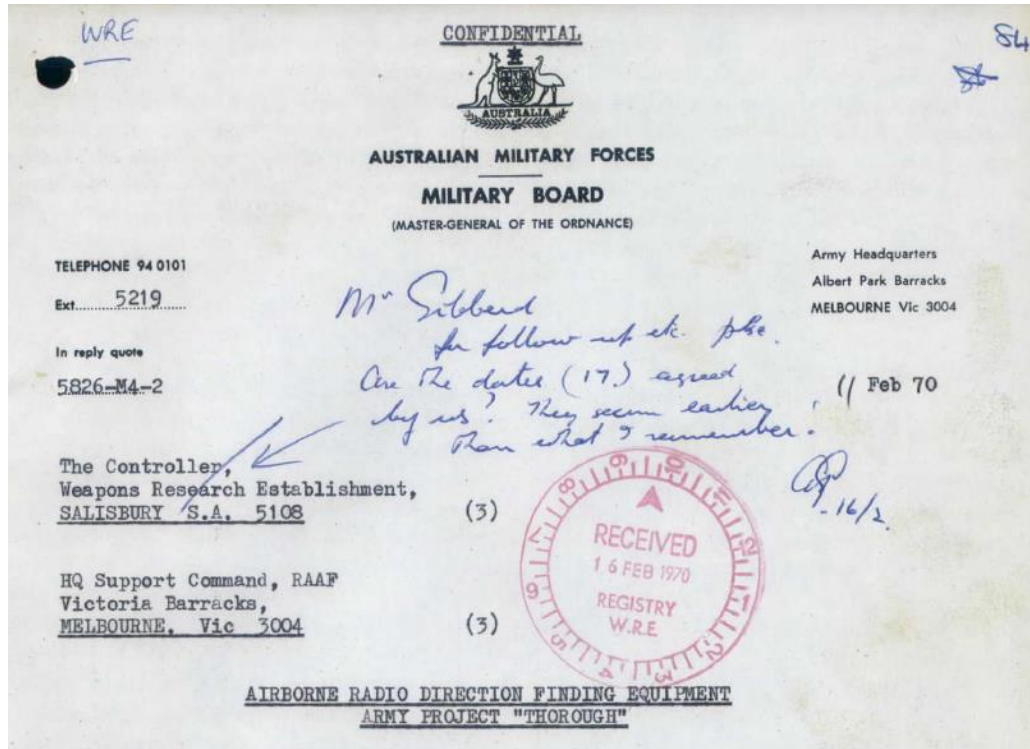 WRE
CONFIDENTIAL
84
AUSTRALIA
AUSTRALIAN MILITARY FORCES
MILITARY BOARD
(MASTER-GENERAL OF THE ORDNANCE)
TELEPHONE 94 0101
Ext. 5219
Army Headquarters
Albert Park Barracks
MELBOURNE Vic 3004
In reply quote
5826-M4-2
Mr Gibberd
for follow up etc. pse.
Are the dates (17.) agreed
by us? They seem earlier
than what I remember.
16/2
11 Feb 70
The Controller,
Weapons Research Establishment,
SALISBURY S.A. 5108 (3)
RECEIVED
16 FEB 1970
REGISTRY
W.R.E
HQ Support Command, RAAF
Victoria Barracks,
MELBOURNE, Vic 3004 (3)
AIRBORNE RADIO DIRECTION FINDING EQUIPMENT
ARMY PROJECT "THOROUGH"